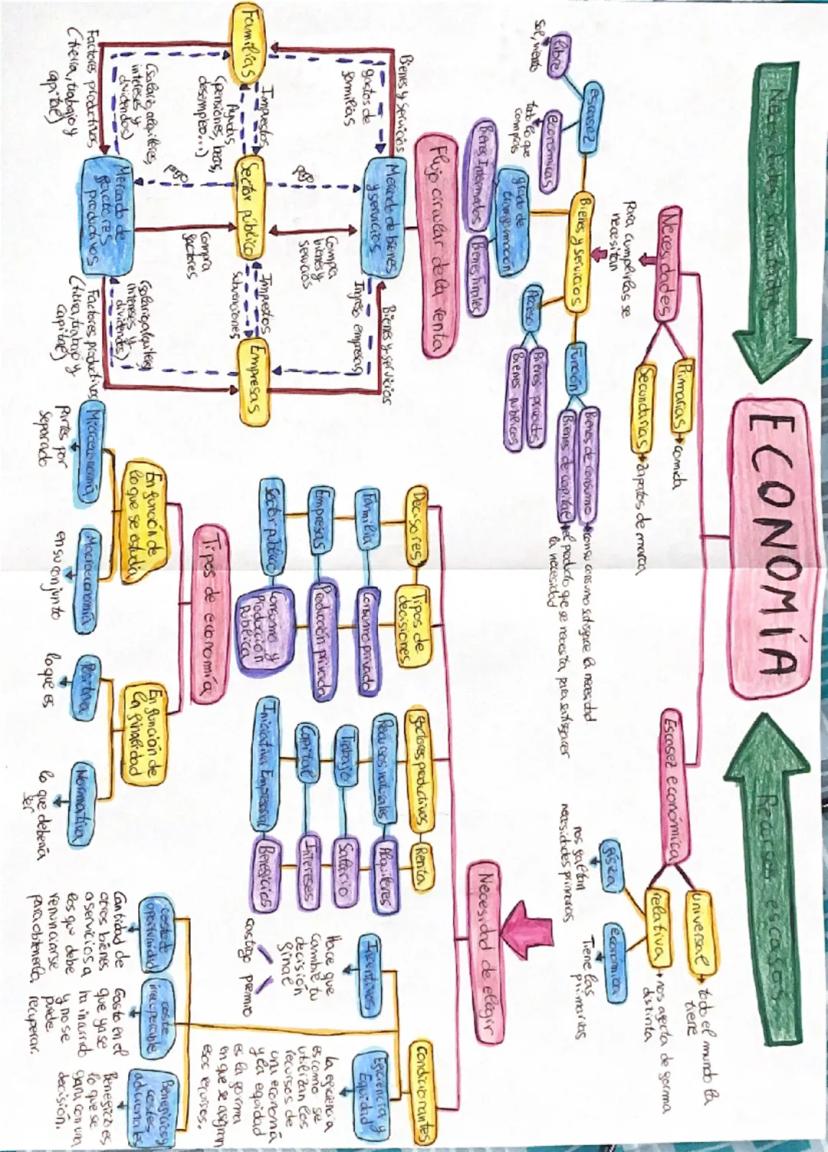 ECONOMÍA
Necesidades ilimitadas
Recursos escasos
Necesidades
Primarias
comida
Secundarias
zapatos de marca
para cumplirlas se
necesitan
Bienes y servicios
escasez
libre
sol, viento
económicos
todo lo que
compras
grado de
transformación
Bienes Intermedios
Bienes finales
Acceso
Bienes privados
Bienes públicos
Función
Bienes de consumo
con su consumo satisface la necesidad
Bienes de capital
el producto que se necesita para satisfacer
la necesidad
Escasez económica
universal
todo el mundo la
tiene
relativa
nos afecta de forma
distinta
física
nos faltan
necesidades primarias
económica
Tiene las
primarias
Necesidad de elegir
Decisores
Tipos de
decisiones
Familia
Consumo privado
Empresas
Producción privada
Sector público
Consumo y
producción
pública
factores productivos
Renta
Recursos naturales
Alquileres
Trabajo
Salario
Capital
Intereses
Iniciativa Empresarial
Beneficios
Condicionantes
Incentivos
Hace que
cambie tu
decisión
final
castigo
premio
Eficiencia y
Equidad
la eficiencia
es como se
utilizan los
recursos de
una economía
y la equidad
es la forma
en que se asignan
esos recursos.
coste de
oportunidad
Cantidad de
otros bienes
o servicios a
los que debe
renunciarse
para obtenerla.
coste
irrecuperable
Gasto en el
que ya se
ha incurrido
y no se
puede
recuperar.
Beneficios y
costes
adicionales
Beneficios es
lo que se
gana con una
decisión.
Flujo circular de la renta
Familias
Mercado de bienes
y servicios
Sector público
Mercado de
factores
productivos
Empresas
Bienes y servicios
gastos de
familias
Bienes y servicios
Ingreso empresas
Impuestos
Ayudas
(pensiones, becas,
desempleo...)
Pago
Compra
bienes y
servicios
Pago
compra
factores
Impuestos
Subvenciones
(Salarios, alquileres,
intereses y
dividendos)
Factores productivos
(tierra, trabajo y
capital)
(salarios, alquileres,
intereses y
dividendos)
Factores productivos
(tierra, trabajo y
capital)
Tipos de economía
En función de
lo que se estudia
Microeconomía
partes por
separado
Macroeconomía
en su conjunto
En función de
la finalidad
Positiva
lo que es
Normativa
lo que debería
ser